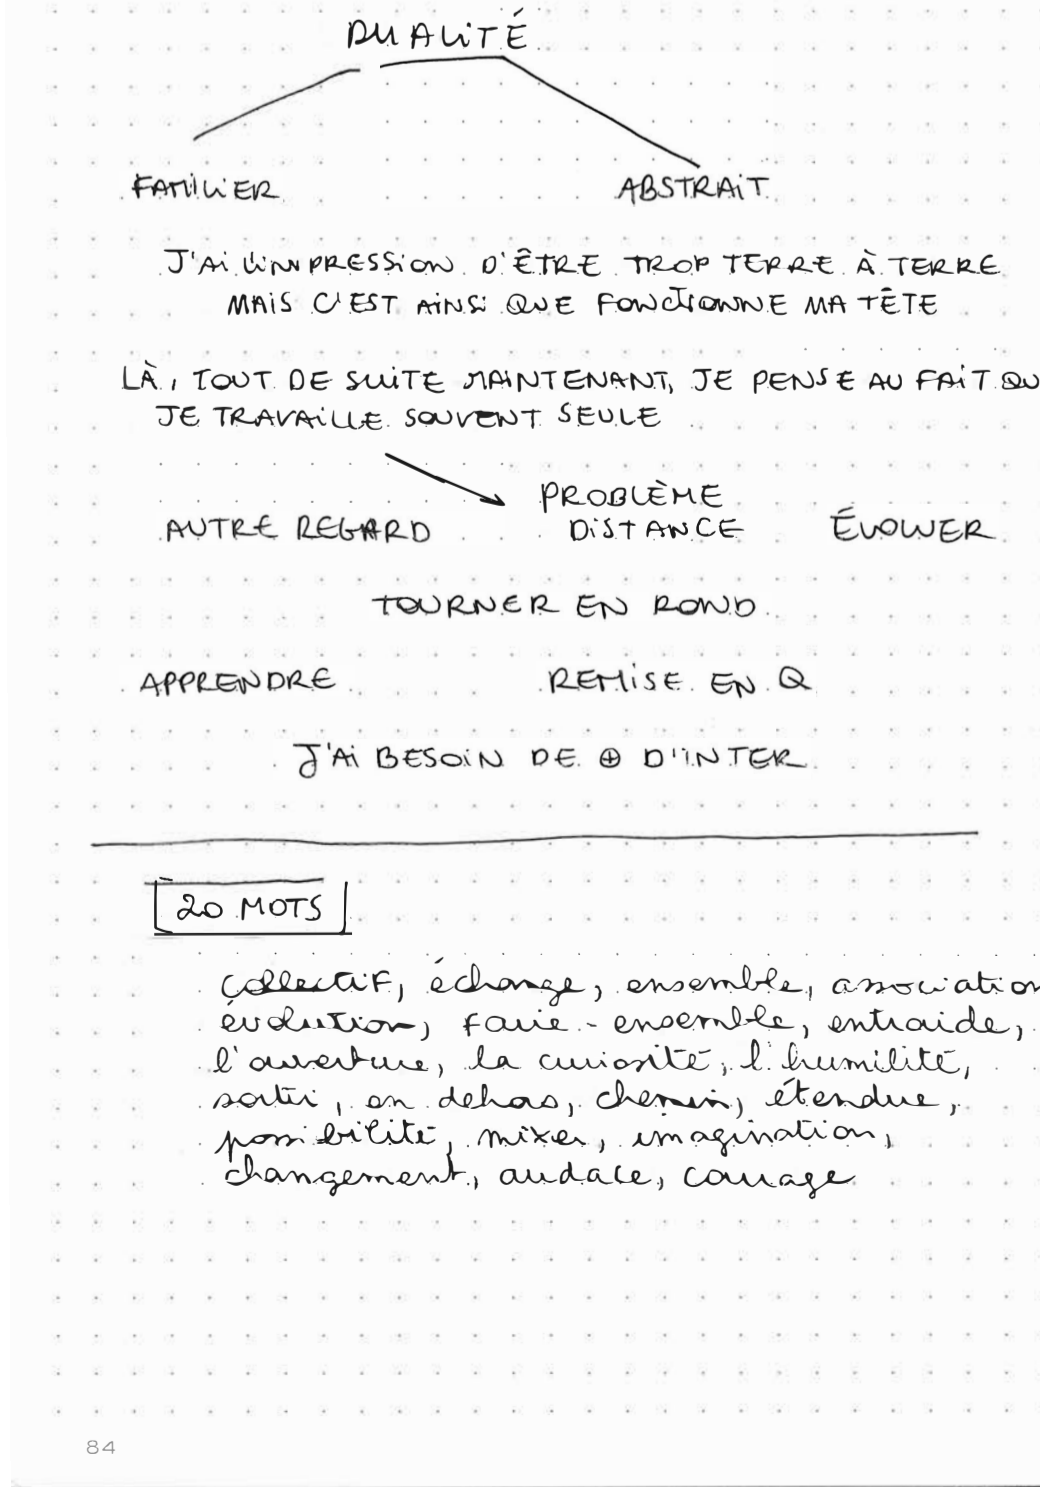 DUALITÉ
FAMILIER ABSTRAIT
J'AI L'IMPRESSION D'ÊTRE TROP TERRE À TERRE
MAIS C'EST AINSI QUE FONCTIONNE MA TÊTE
LÀ, TOUT DE SUITE MAINTENANT, JE PENSE AU FAIT QU
JE TRAVAILLE SOUVENT SEULE
PROBLÈME
AUTRE REGARD DISTANCE ÉVOLUER
TOURNER EN ROND
APPRENDRE REMISE EN Q
J'AI BESOIN DE ⊕ D'INTER
20 MOTS
collectif, échange, ensemble, association
évolution, faire-ensemble, entraide,
l'ouverture, la curiosité, l'humilité,
sortir, en dehors, chemin, étendue,
possibilité, mixer, imagination,
changement, audace, courage
84